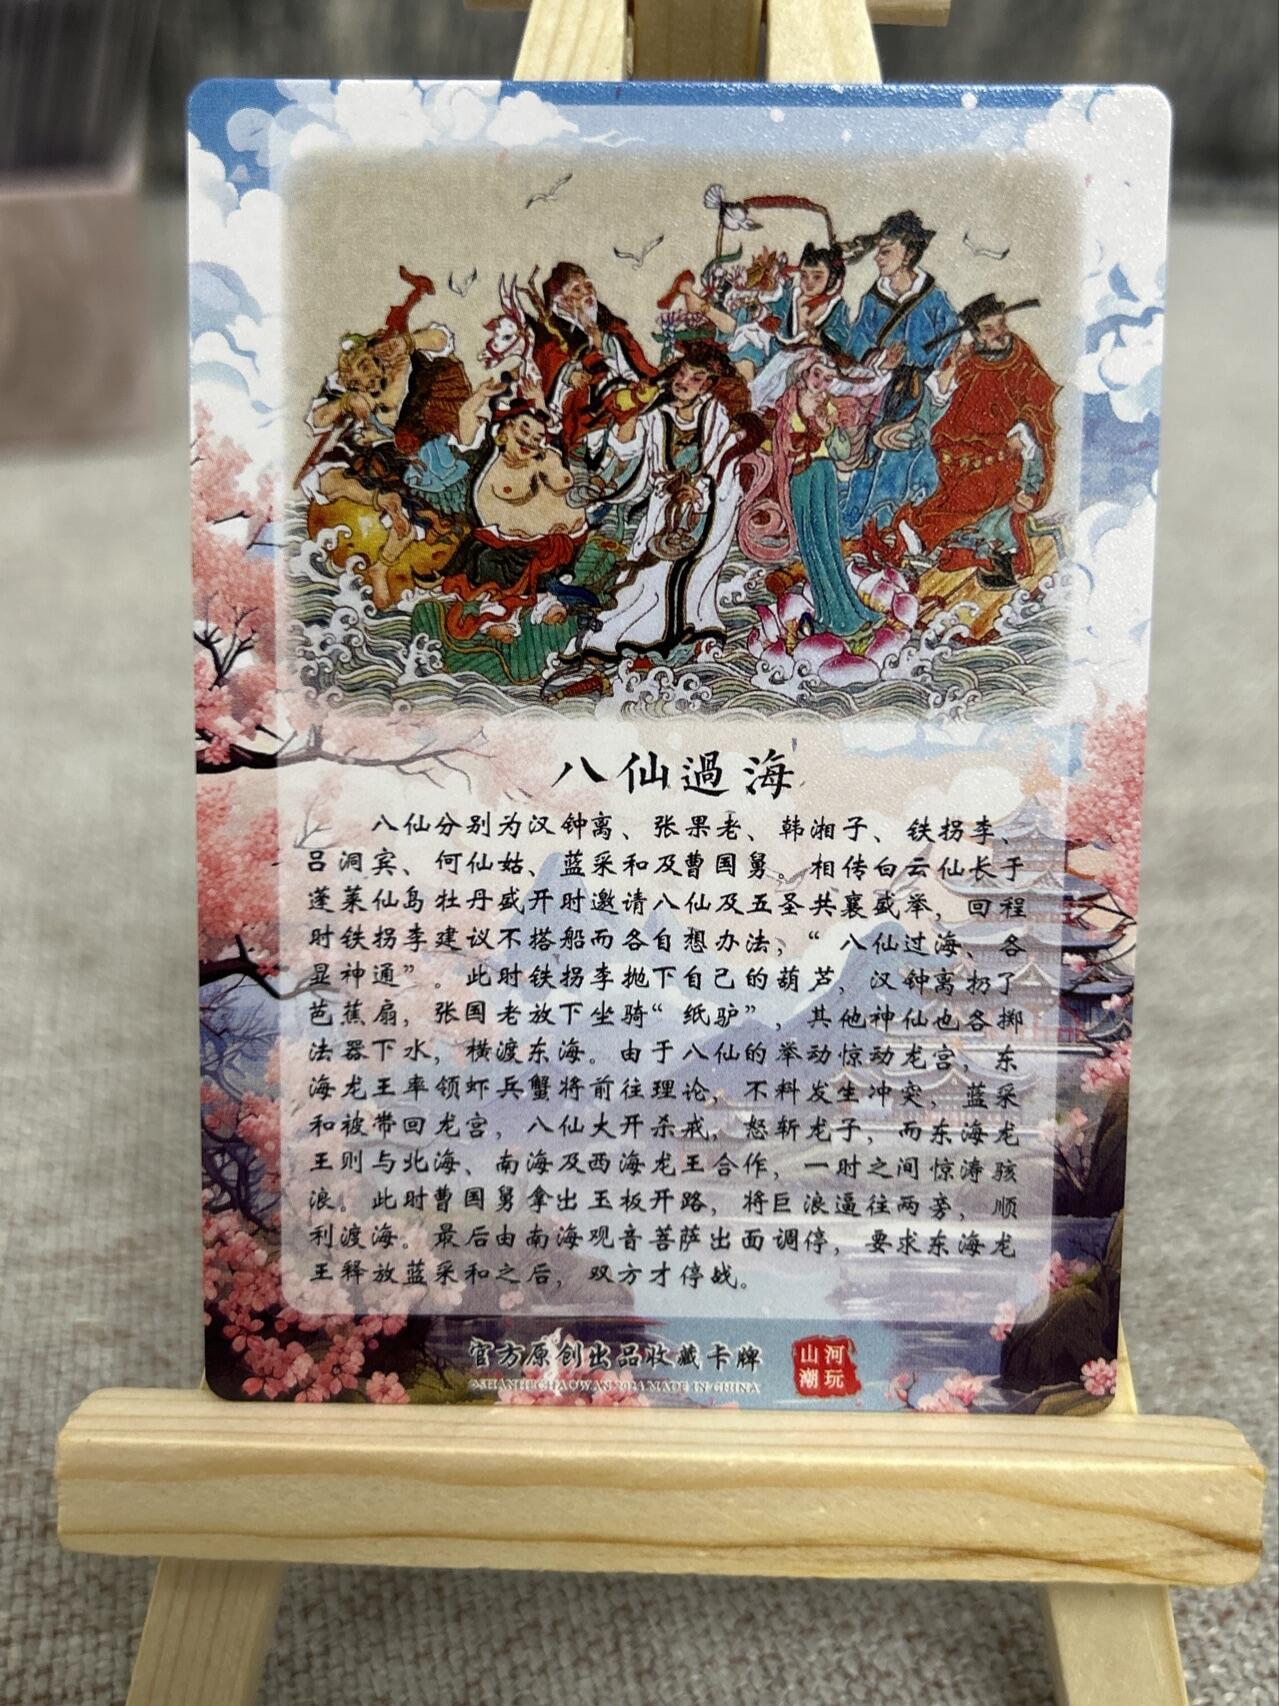 八仙過海
八仙分别为汉钟离、张果老、韩湘子、铁拐李、
吕洞宾、何仙姑、蓝采和及曹国舅。相传白云仙长于
蓬莱仙岛牡丹盛开时邀请八仙及五圣共襄盛举，回程
时铁拐李建议不搭船而各自想办法，“八仙过海、各
显神通”。此时铁拐李抛下自己的葫芦，汉钟离扔了
芭蕉扇，张国老放下坐骑“纸驴”，其他神仙也各掷
法器下水，横渡东海。由于八仙的举动惊动龙宫，东
海龙王率领虾兵蟹将前往理论，不料发生冲突，蓝采
和被带回龙宫，八仙大开杀戒，怒斩龙子，而东海龙
王则与北海、南海及西海龙王合作，一时之间惊涛骇
浪。此时曹国舅拿出玉板开路，将巨浪逼往两旁，顺
利渡海。最后由南海观音菩萨出面调停，要求东海龙
王释放蓝采和之后，双方才停战。
官方原创出品收藏卡牌
©SHANHECHAOWAN 2024 MADE IN CHINA
山河
潮玩